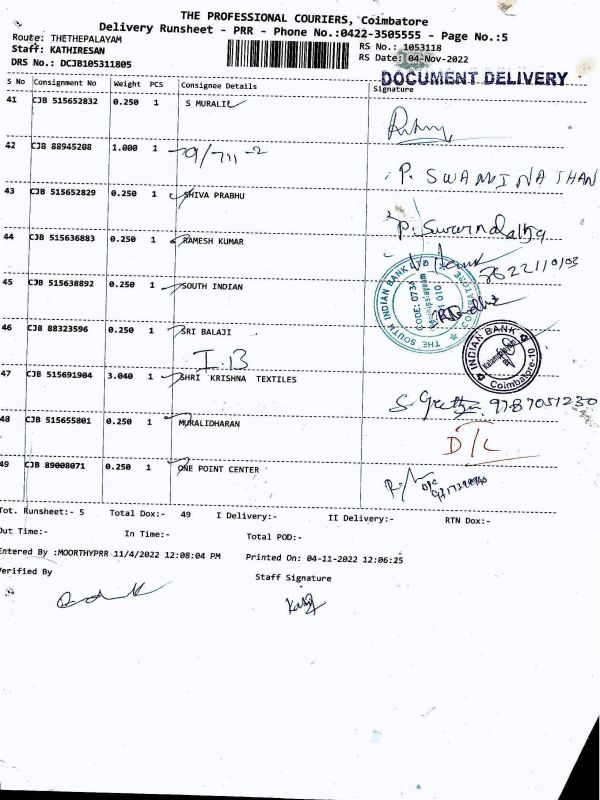 THE PROFESSIONAL COURIERS, Coimbatore
Delivery Runsheet - PRR - Phone No.:0422-3505555 - Page No.:5
Route: THETHEPALAYAM
RS No.: 1053118
Staff: KATHIRESAN
RS Date: 04-Nov-2022
DRS No.: DCJB105311805
DOCUMENT DELIVERY
S No Consignment No Weight PCS Consignee Details Signature
41 CJB 515652832 0.250 1 S MURALI
42 CJB 88945208 1.000 1 79/711-2 P. SWAMINATHAN
43 CJB 515652829 0.250 1 SHIVA PRABHU
44 CJB 515636883 0.250 1 RAMESH KUMAR
45 CJB 515638892 0.250 1 SOUTH INDIAN
THE SOUTH INDIAN BANK LTD COIMBATORE
CODE: 0734
46 CJB 88323596 0.250 1 SRI BALAJI
I.B
INDIAN BANK
Coimbatore-10
47 CJB 515691904 3.040 1 SHRI KRISHNA TEXTILES 9787051230
48 CJB 515655801 0.250 1 MURALIDHARAN D/L
49 CJB 89008071 0.250 1 ONE POINT CENTER
Tot. Runsheet:- 5 Total Dox:- 49 I Delivery:- II Delivery:- RTN Dox:-
Out Time:- In Time:- Total POD:-
Entered By :MOORTHYPRR 11/4/2022 12:08:04 PM Printed On: 04-11-2022 12:06:25
Verified By Staff Signature